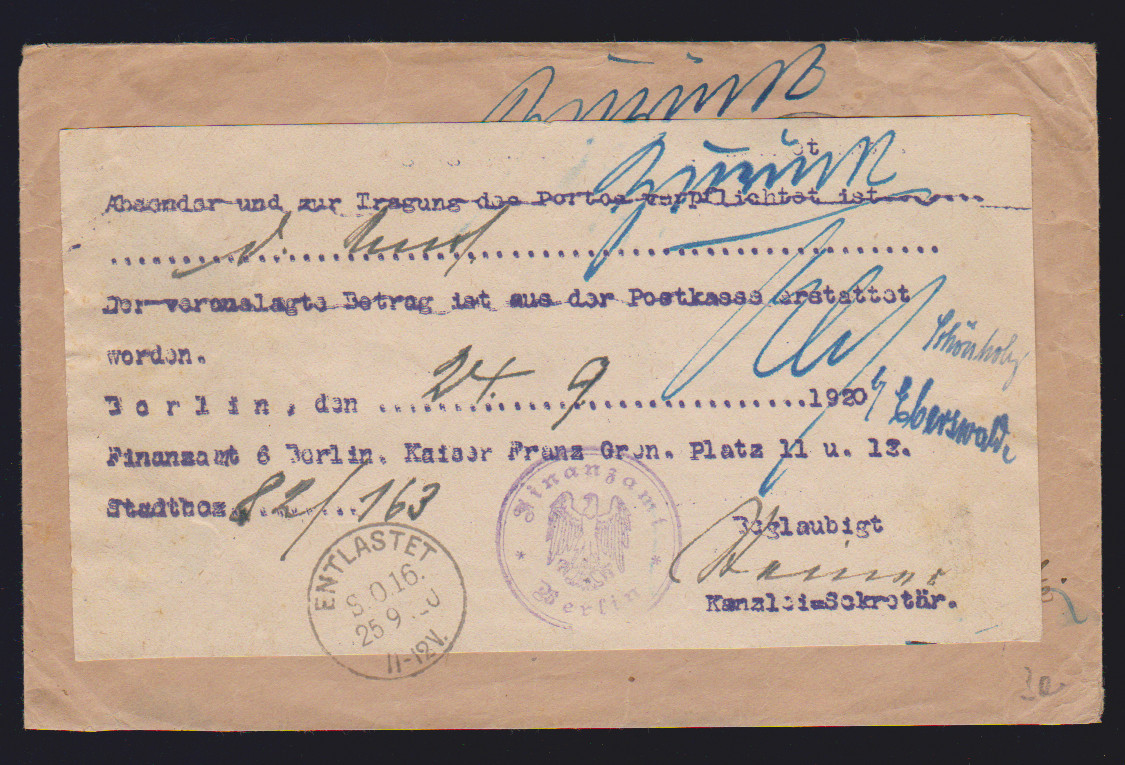 Zurück
Zurück
Absender und zur Tragung des Portos verpflichtet ist
Der verauslagte Betrag ist aus der Postkasse erstattet
worden.
Berlin, den 24. 9 1920
Schönholz
b/ Eberswalde
Finanzamt 6 Berlin. Kaiser Franz Gren. Platz 11 u. 12.
Stadthox 82/163
Finanzamt
* *
Berlin
Beglaubigt
Kanzlei=Sekretär.
ENTLASTET
S.O.16.
25 9
11-12V.